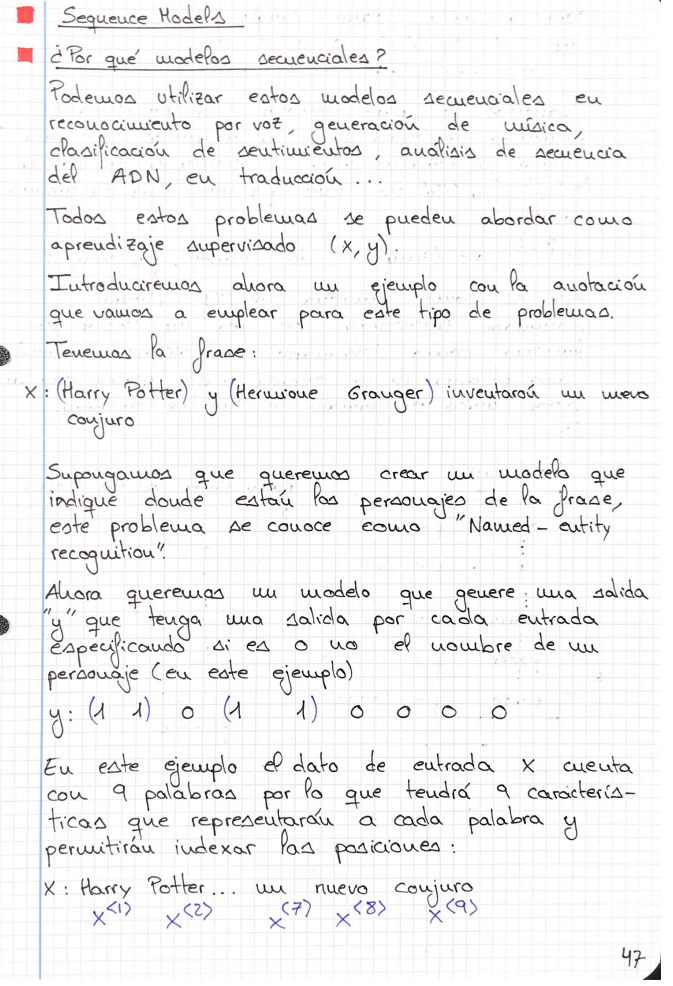 Sequence Models
¿Por qué modelos secuenciales?
Podemos utilizar estos modelos secuenciales en
reconocimiento por voz, generación de música,
clasificación de sentimientos, análisis de secuencia
del ADN, en traducción ...
Todos estos problemas se pueden abordar como
aprendizaje supervisado (x, y).
Introduciremos ahora un ejemplo con la anotación
que vamos a emplear para este tipo de problemas.
Tenemos la frase:
X: (Harry Potter) y (Hermione Granger) inventarón un nuevo
conjuro
Supongamos que queremos crear un modelo que
indique donde están los personajes de la frase,
este problema se conoce como "Named-entity
recognition".
Ahora queremos un modelo que genere una salida
"y" que tenga una salida por cada entrada
especificando si es o no el nombre de un
personaje (en este ejemplo)
y: (1 1) 0 (1 1) 0 0 0 0
En este ejemplo el dato de entrada X cuenta
con 9 palabras por lo que tendrá 9 caracterís-
ticas que representarán a cada palabra y
permitirán indexar las posiciones:
X: Harry Potter... un nuevo conjuro
x<1> x<2> x<7> x<8> x<9>
47